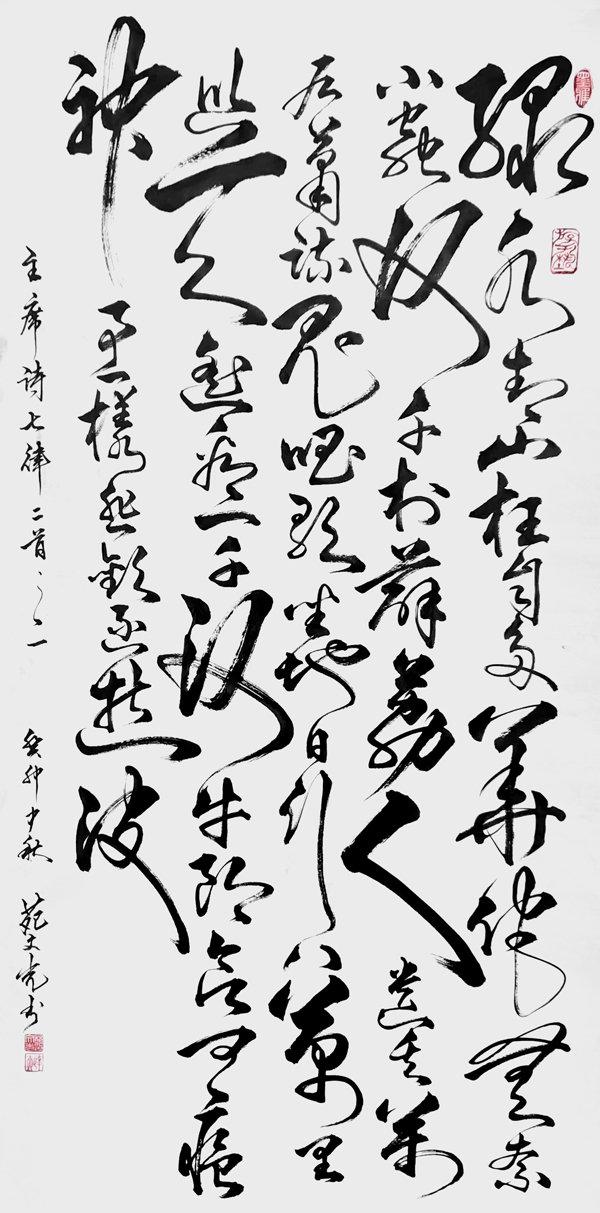 绿水青山枉自多華佗無奈
小蟲何千村薜荔人遺矢萬
户蕭疏鬼唱歌坐地日行八萬里
巡天遥看一千河牛郎欲問瘟
神事一樣悲歡逐逝波
主席诗七律二首之一 癸卯中秋 文亮书